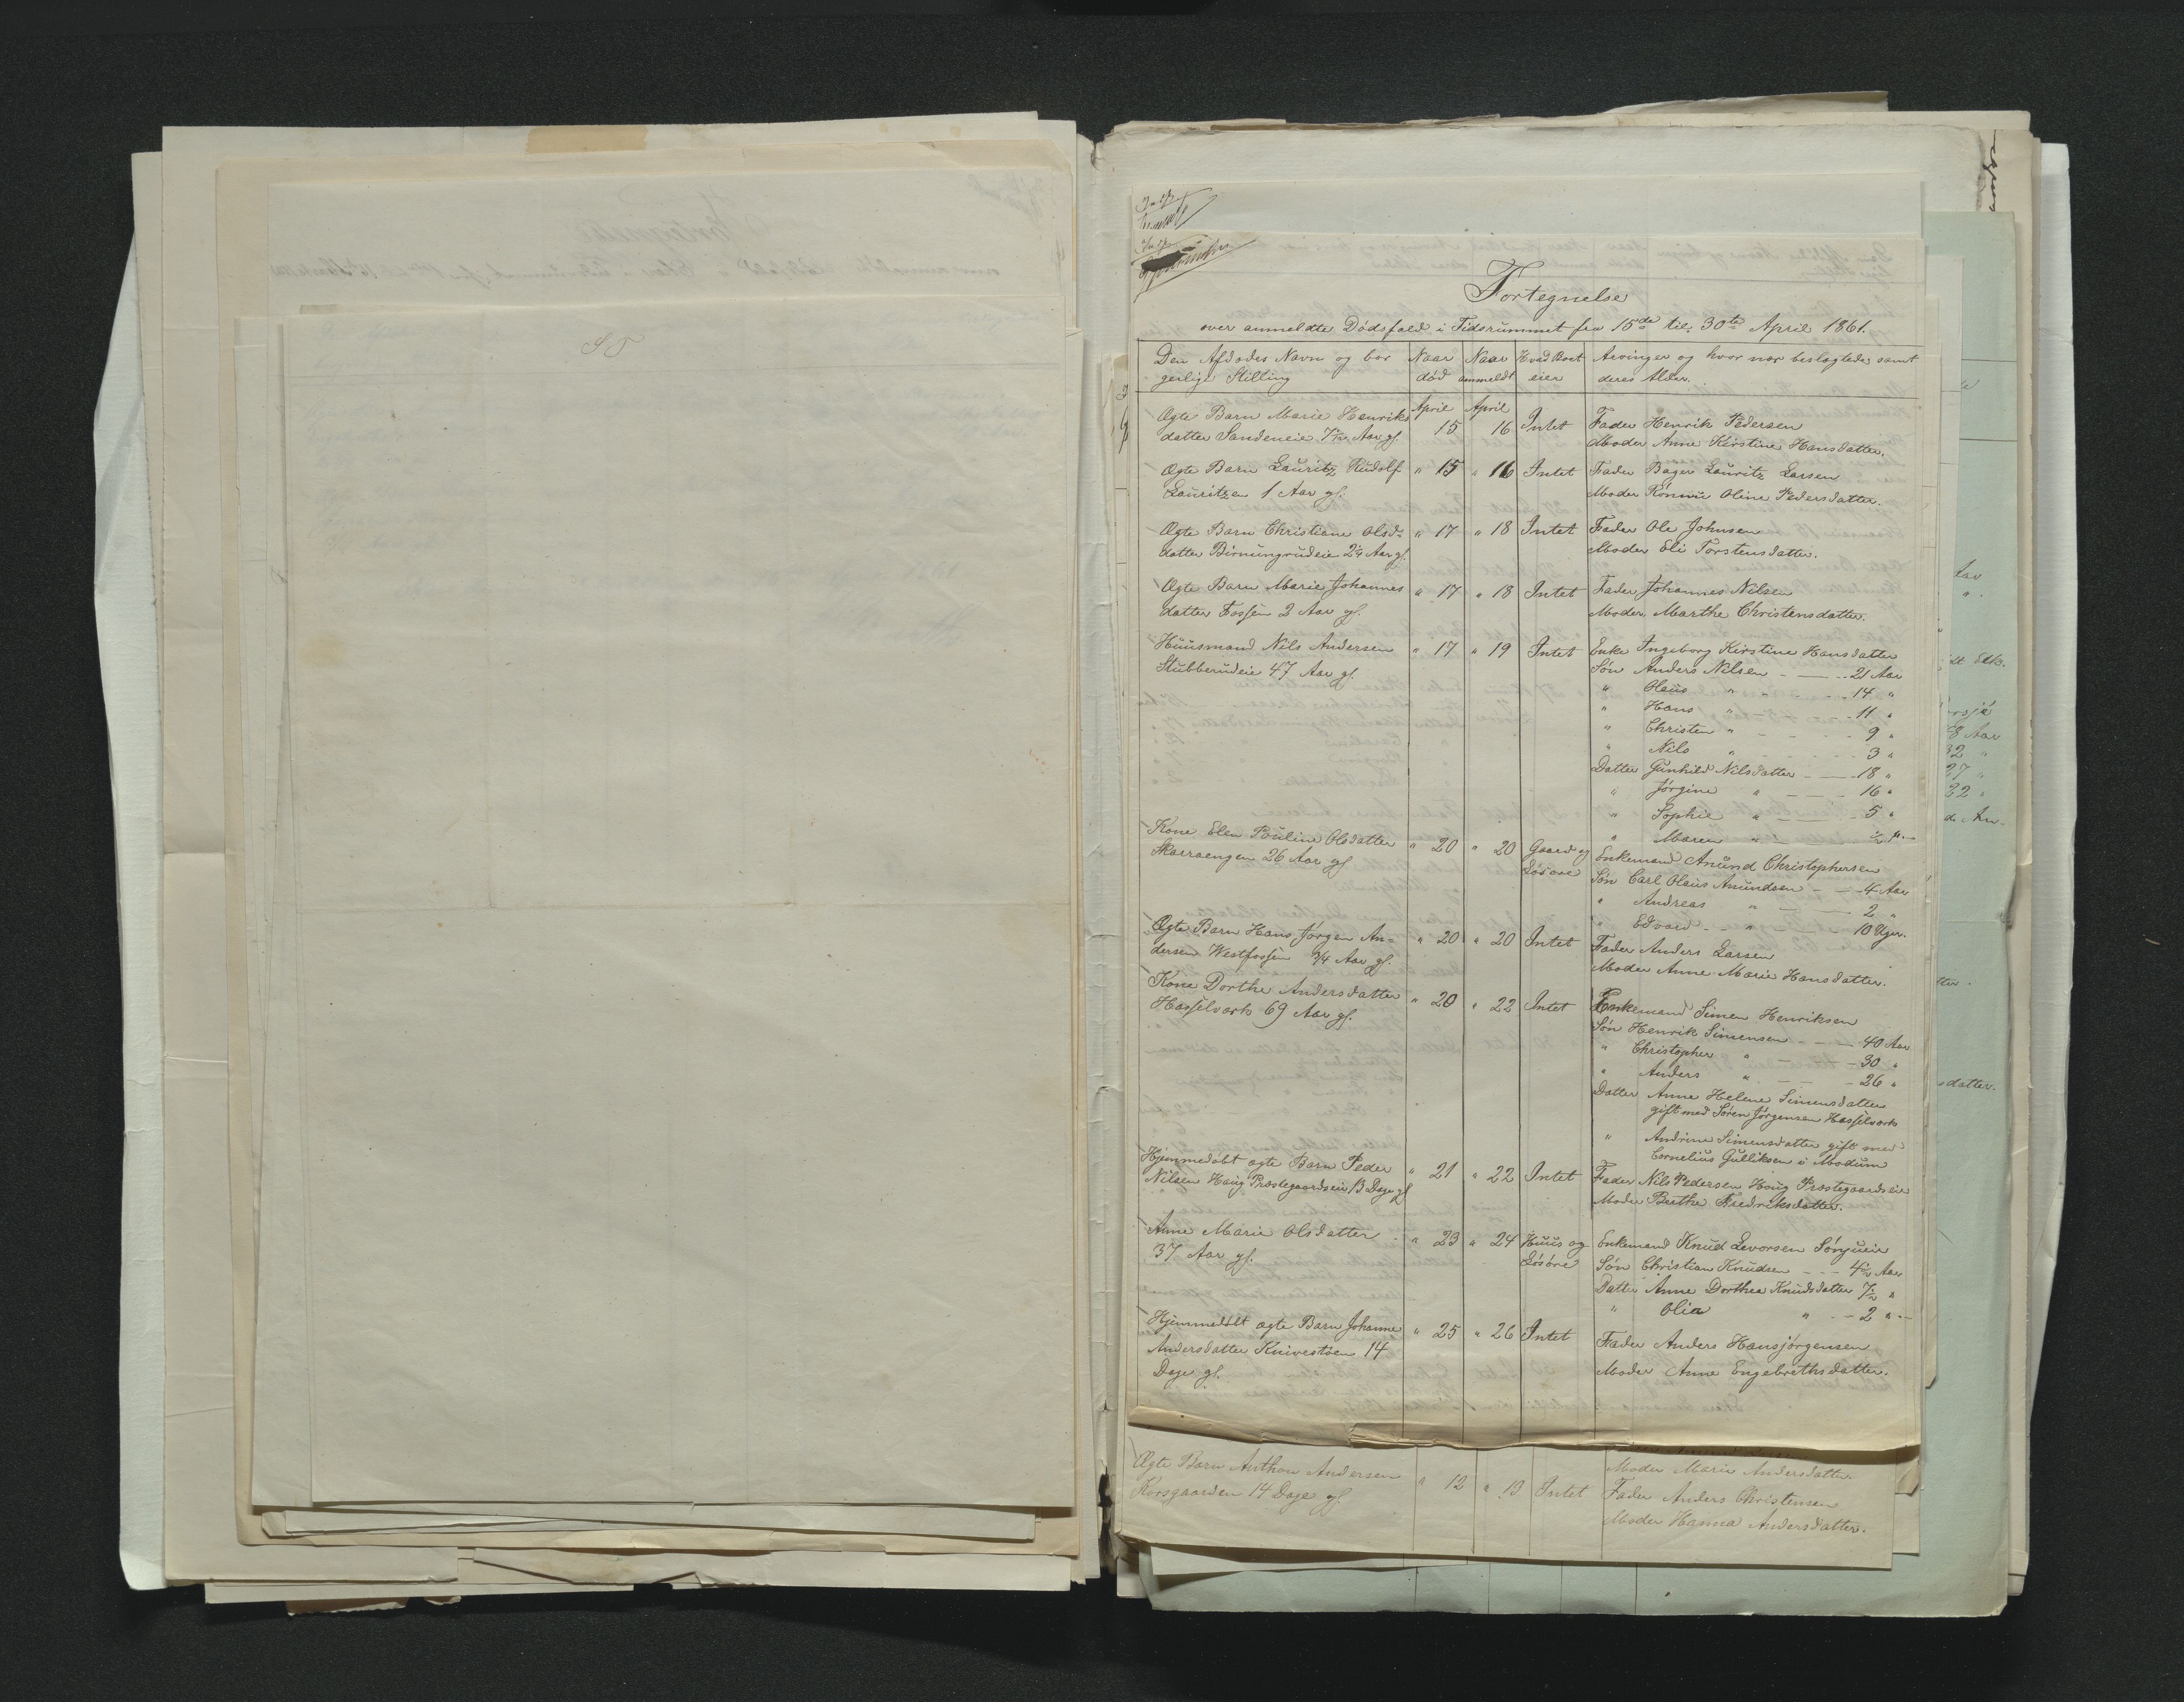 Fortegnelse
over anmeldte Dødsfald i Tidsrummet fra 15de til 30te April 1861.
Den Afdødes Navn og bor
gerlige Stilling
Naar
død
Naar
anmeldt
Hvad Boet
eier
Arvinger og hvor nær beslægtede samt
deres Alder.
Ægte Barn Marie Henriks
datter Sandeneie Aar gl.
April
15
April
16
Intet
Fader Henrik Pedersen
Moder Anne Kirstine Hansdatter.
Ægte Barn Lauritz Rudolf
Lauritzen 1 Aar gl.
" 15 " 16 Intet
Fader Bager Lauritz Larsen
Moder Oline Pedersdatter.
Ægte Barn Christiane Olsd=
datter 2¼ Aar gl.
" 17 " 18 Intet
Fader Ole Johnsen
Moder Eli Torstensdatter.
Ægte Barn Marie Johannes
datter Fossen 2 Aar gl.
" 17 " 18 Intet
Fader Johannes Nilsen
Moder Marthe Christensdatter.
Huusmand Nils Andersen
Stubberudeie 47 Aar gl.
" 17 " 19 Intet
Enke Ingeborg Kirstine Hansdatter
Søn Anders Nilsen - — - 21 Aar
" Olaus " — - 14 "
" Hans " — - 11 "
" Christen " - — - 9 "
" Nils " - - - 3 "
Datter Gunhild Nilsdatter — - 18 "
" Jørgine " — — 16 "
" Sophie " — — 5 "
" Maren " — ½ "
Kone Elen Pouline Olsdatter
Skarraengen 26 Aar gl.
" 20 " 20 Gaard og
Løsøre
Enkemand Amund Christophersen
Søn Carl Olaus Amundsen — 4 Aar
" Andreas " — 2 "
" Edvard - " - 10 Uger.
Ægte Barn Hans Jørgen An=
dersen Westfossen ¾ Aar gl.
" 20 " 20 Intet
Fader Anders Larsen
Moder Anne Marie Hansdatter.
Kone Dorthe Andersdatter
Hasselværk 69 Aar gl.
" 20 " 22 Intet
Enkemand Simen Henriksen
Søn Henrik Simensen — 40 Aar
" Christopher " — - 30 "
" Anders " - — - 26 "
Datter Anne Helene Simensdatter
gift med Søren Jørgensen Hasselværk
" Andrine Simensdatter gift med
Cornelius Gulliksen i Modum
Hjemmedøbt ægte Barn Peder
Nilsen Haug Præstegaardseie 13 Dage gl.
" 21 " 22 Intet
Fader Nils Pedersen Haug Præstegaardseie
Moder Berthe Fredriksdatter.
Anne Marie Olsdatter
37 Aar gl.
" 23 " 24 Huus og
Løsøre
Enkemand Knud Levorsen
Søn Christian Knudsen - - - 4½ Aar
Datter Anne Dorthea Knudsdatter 7½ "
" Olia " - - 2 "
Hjemmedøbt ægte Barn Johanne
Andersdatter Knivestøen 14
Dage gl.
" 25 " 26 Intet
Fader Anders Hansjørgensen
Moder Anne Engebrethsdatter.
Moder Marie Andersdatter.
Ægte Barn Anthon Andersen
Korsgaarden 14 Dage gl.
" 12 " 13 Intet
Fader Anders Christensen
Moder Hanna Andersdatter.